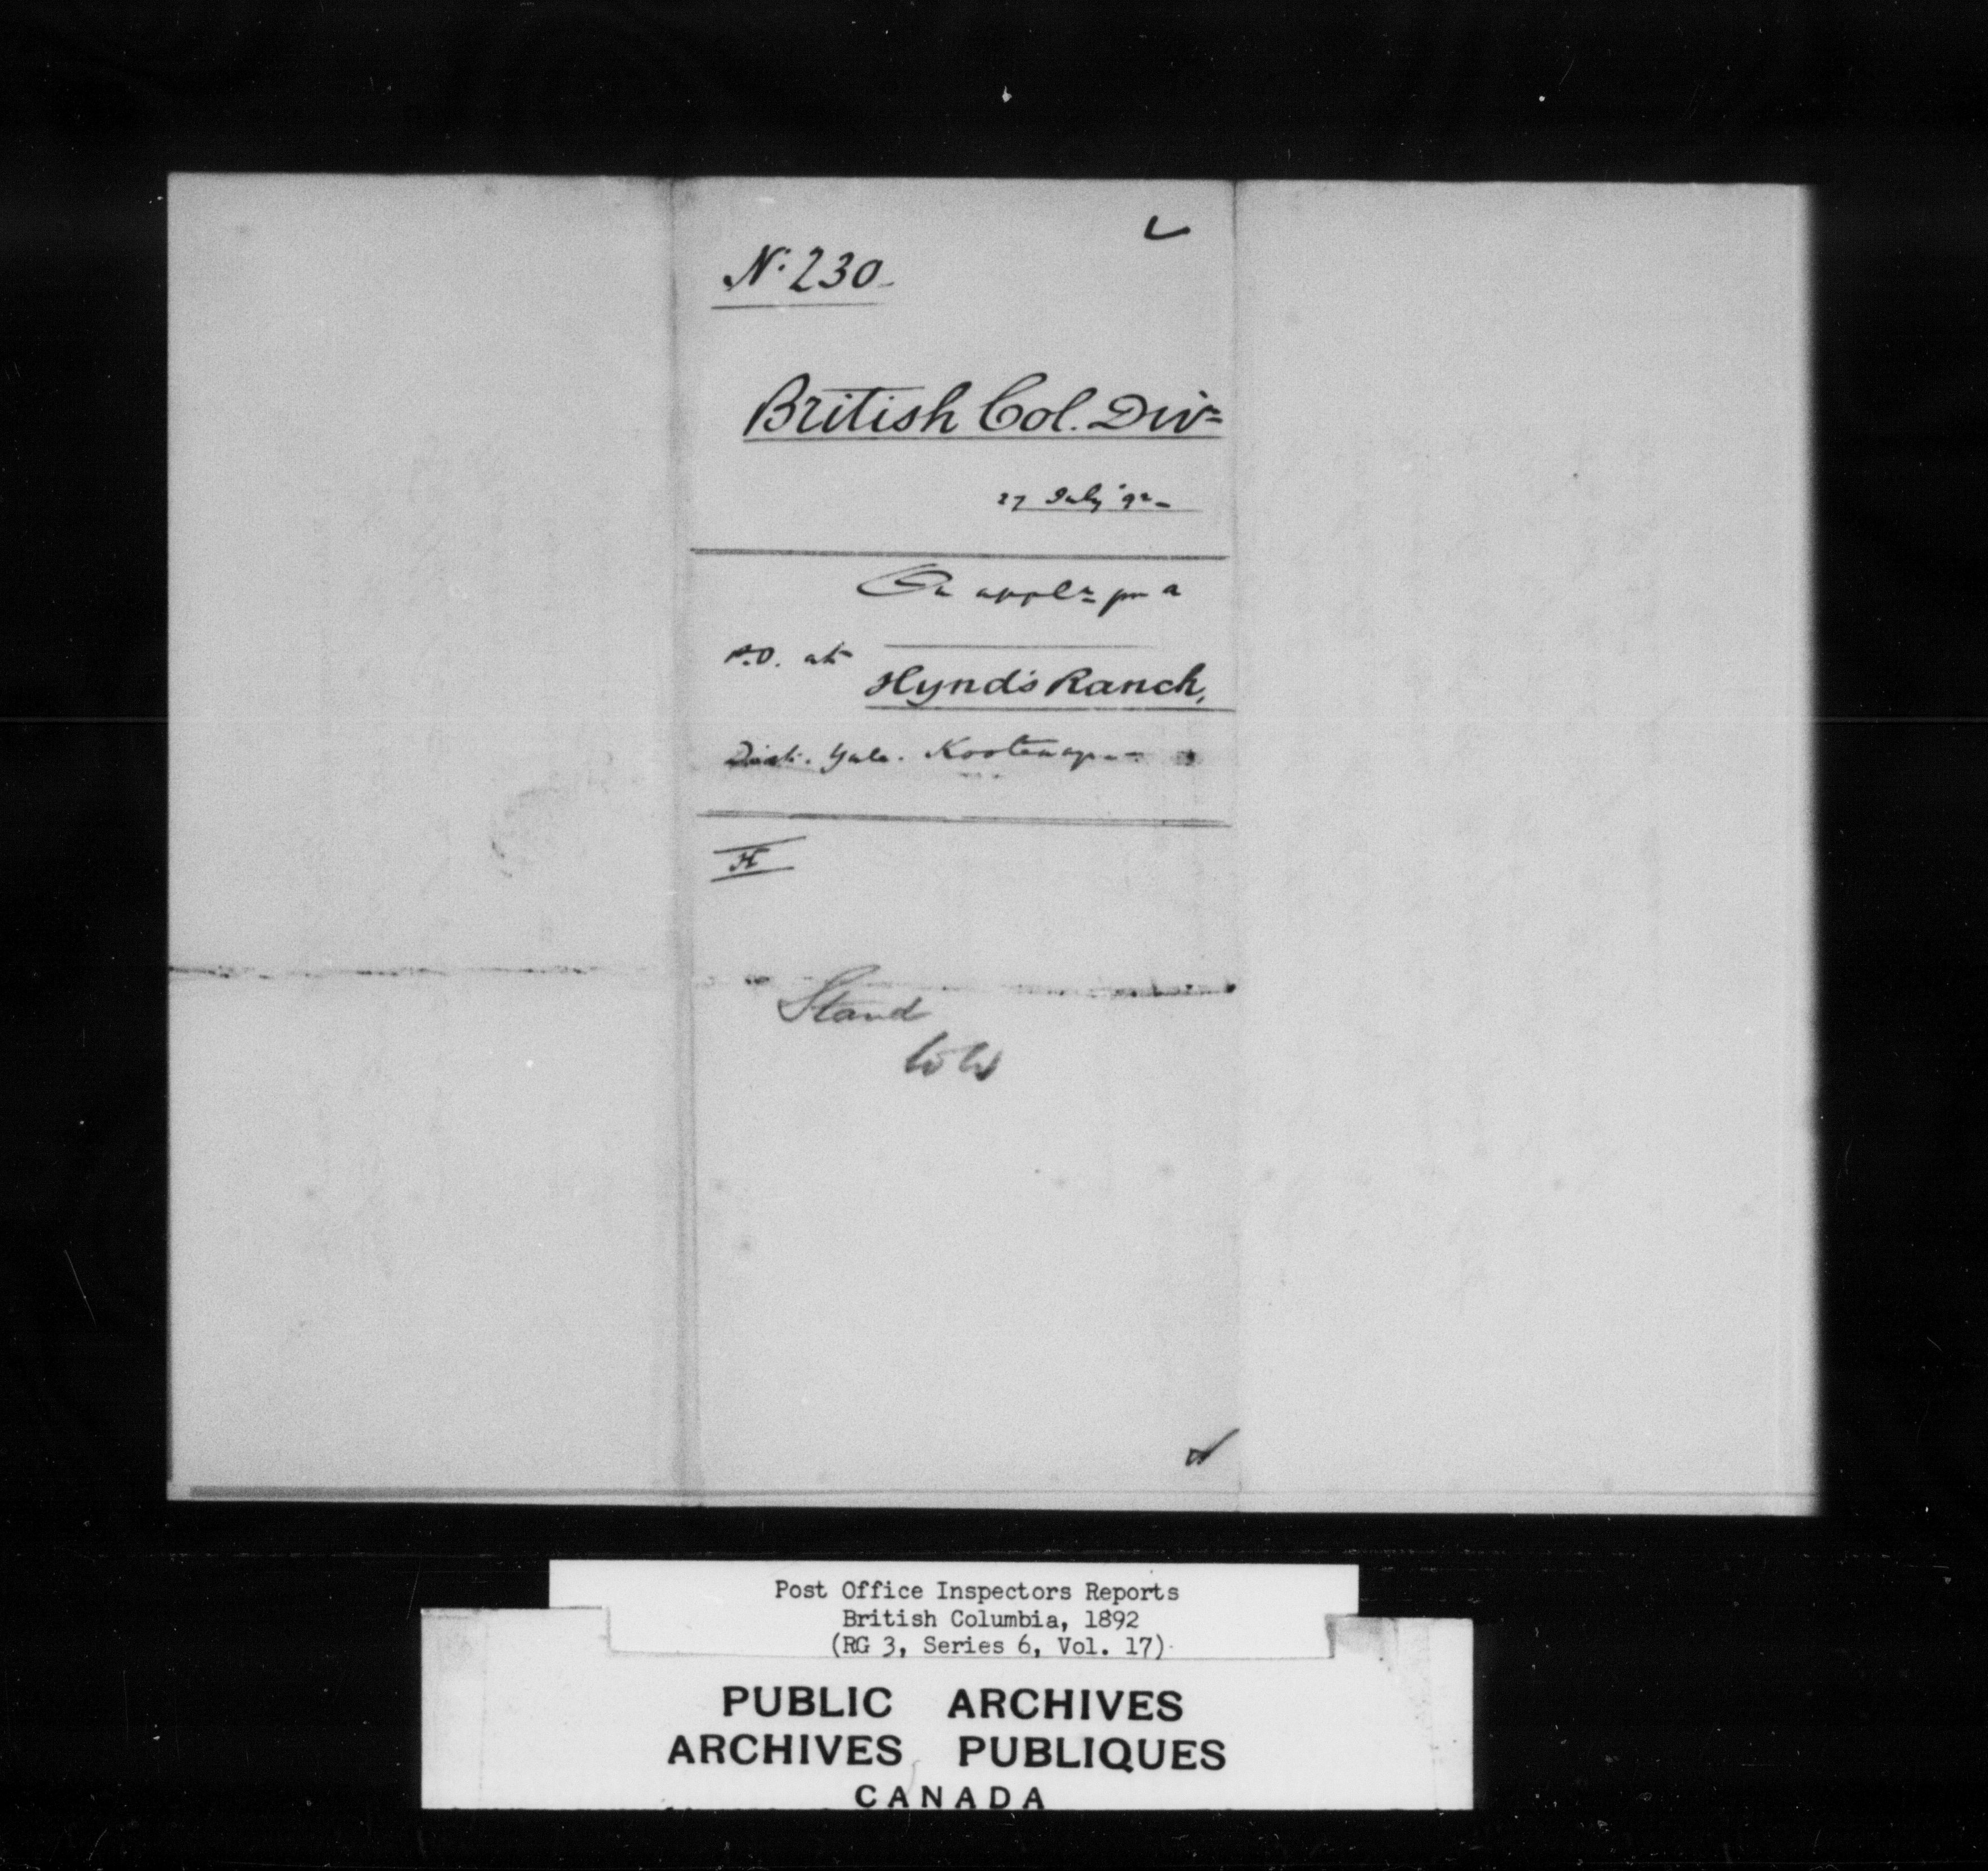 No. 230
British Col. Divn
27 July '92
On appln for a
P.O. at
Hynd's Ranch,
Dist. Yale. Kootenay
H
Stand
Post Office Inspectors Reports
British Columbia, 1892
(RG 3, Series 6, Vol. 17)
PUBLIC ARCHIVES
ARCHIVES PUBLIQUES
CANADA